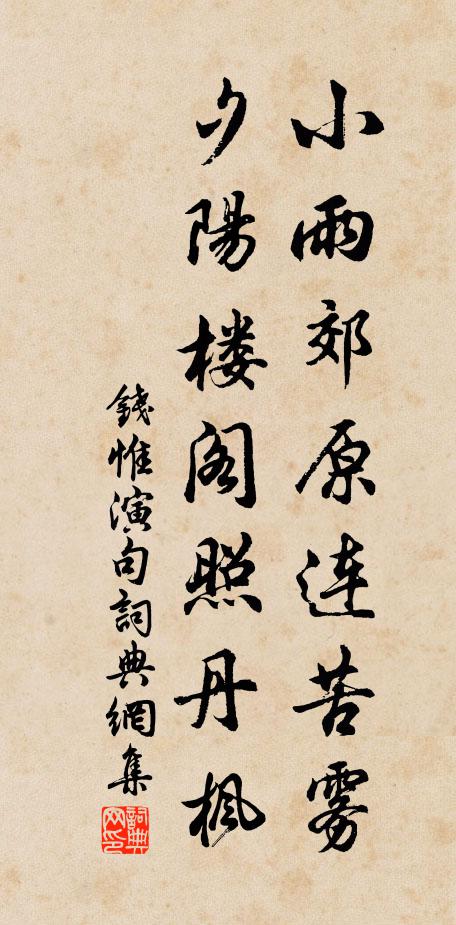 小雨郊原連苦雾
夕陽楼阁照丹枫
錢惟演句詞典網集
詞典网印